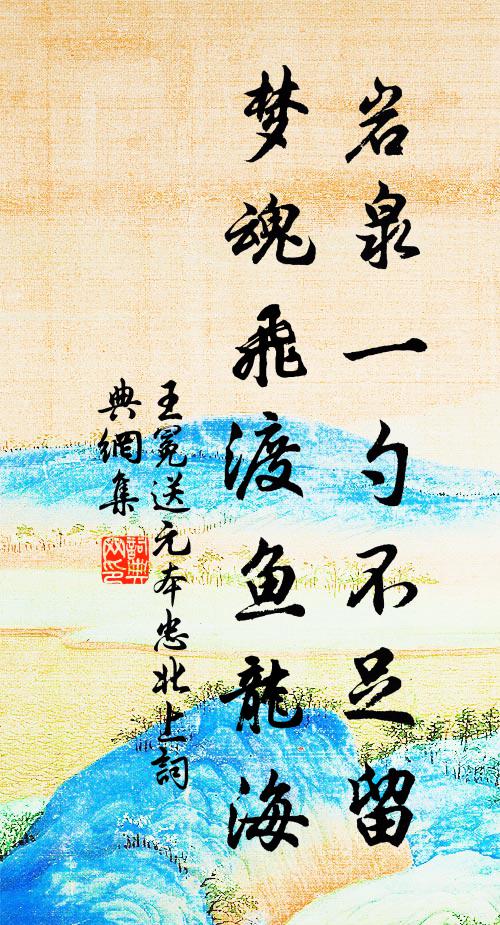 岩泉一勺不足留
梦魂飛渡鱼龍海
王冕送元本忠北上詞
典網集
詞典网印